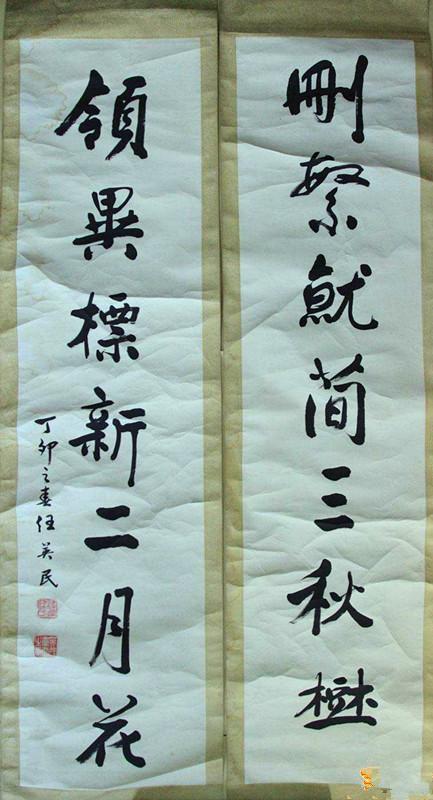 刪繁就簡三秋樹
領異標新二月花
丁卯之春任民